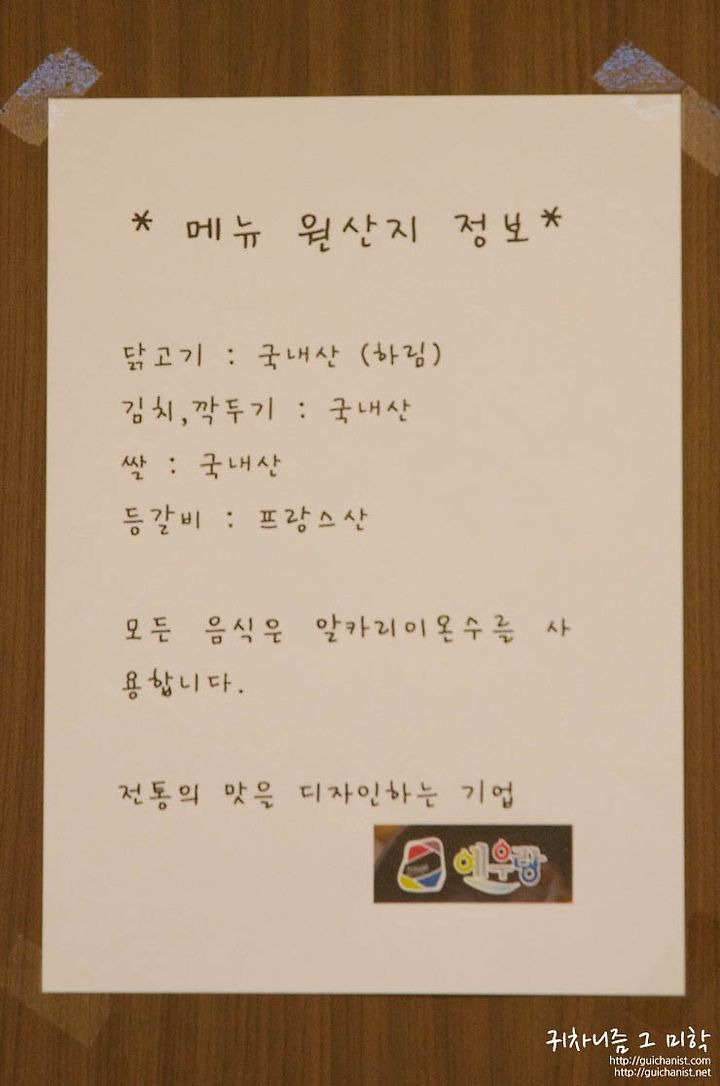 * 메뉴 원산지 정보*
닭고기 : 국내산 (하림)
김치,깍두기 : 국내산
쌀 : 국내산
등갈비 : 프랑스산
모든 음식은 알카리이온수를 사
용합니다.
전통의 맛을 디자인하는 기업
예우랑
귀차니즘 그 미학
http://guichanist.com
http://guichanist.net